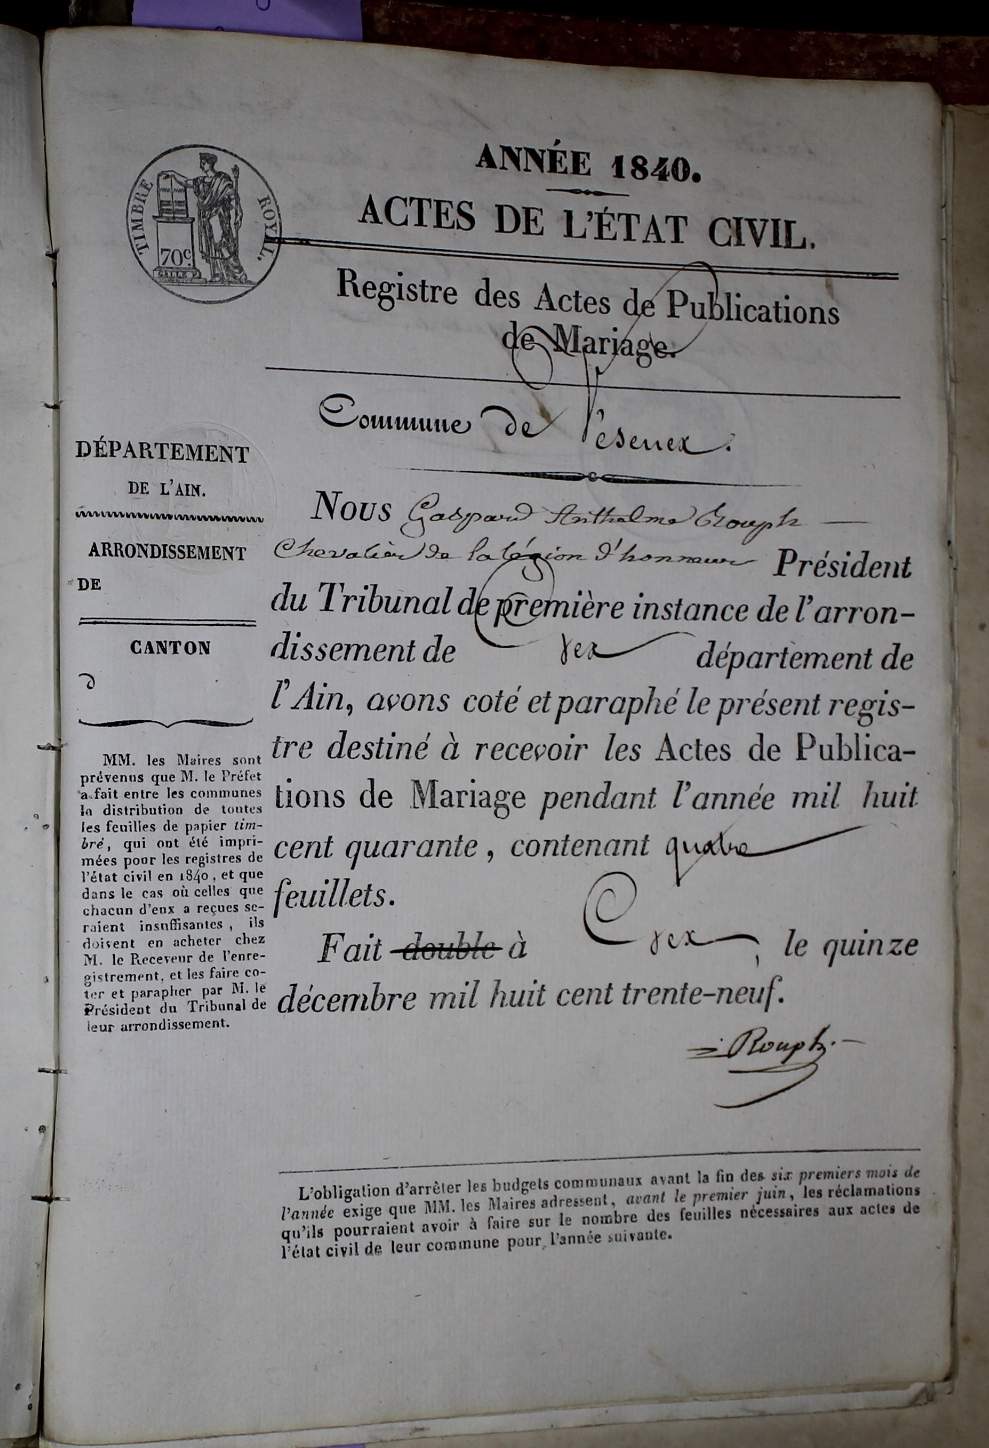 ANNÉE 1840.
ACTES DE L'ÉTAT CIVIL.
TIMBRE ROYAL.
70c.
Registre des Actes de Publications
de Mariage.
Commune de Vésenex.
DÉPARTEMENT
DE L'AIN.
ARRONDISSEMENT
DE
CANTON
D
MM. les Maires sont
prévenus que M. le Préfet
a fait entre les communes
la distribution de toutes
les feuilles de papier tim-
bré, qui ont été impri-
mées pour les registres de
l'état civil en 1840, et que
dans le cas où celles que
chacun d'eux a reçues se-
raient insuffisantes, ils
doivent en acheter chez
M. le Receveur de l'enre-
gistrement, et les faire co-
ter et parapher par M. le
Président du Tribunal de
leur arrondissement.
Nous Gaspard Anthelme Rouph
Chevalier de la légion d'honneur Président
du Tribunal de première instance de l'arron-
dissement de Gex département de
l'Ain, avons coté et paraphé le présent regis-
tre destiné à recevoir les Actes de Publica-
tions de Mariage pendant l'année mil huit
cent quarante, contenant quatre
feuillets.
Fait double à Gex, le quinze
décembre mil huit cent trente-neuf.
Rouph.
L'obligation d'arrêter les budgets communaux avant la fin des six premiers mois de
l'année exige que MM. les Maires adressent, avant le premier juin, les réclamations
qu'ils pourraient avoir à faire sur le nombre des feuilles nécessaires aux actes de
l'état civil de leur commune pour l'année suivante.